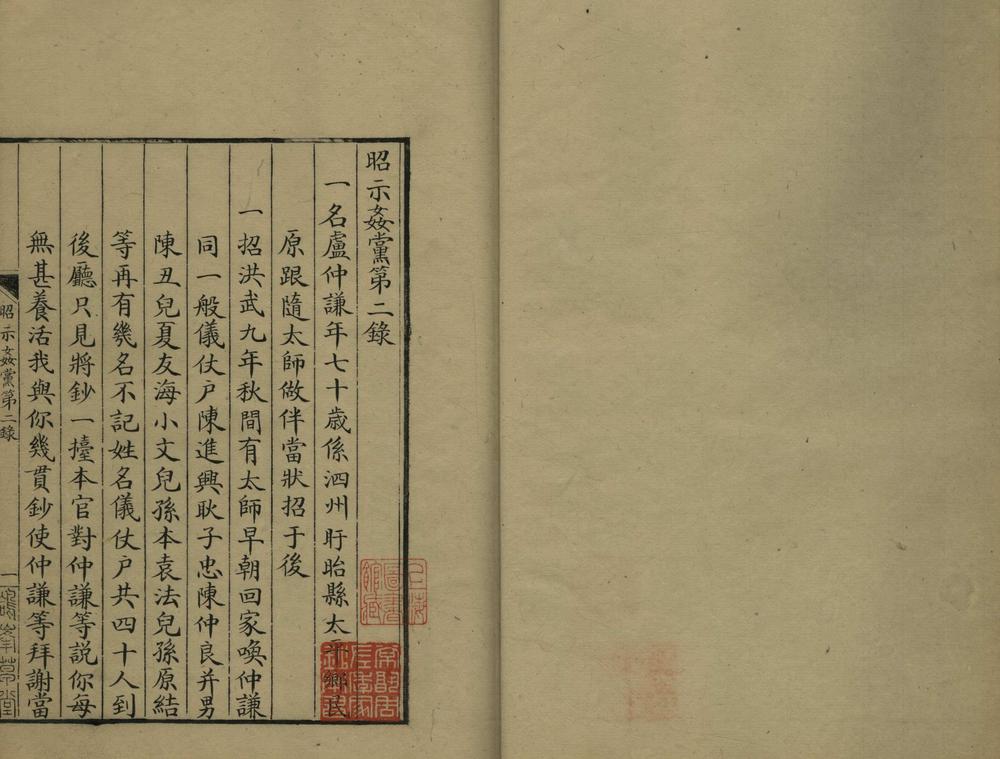 昭示姦黨第二錄
一名盧仲謙年七十歲係泗州盱眙縣太平鄉民
原跟隨太師做伴當狀招于後
一招洪武九年秋間有太師早朝回家喚仲謙
同一般儀仗戶陳進興耿子忠陳仲良并男
陳丑兒夏友海小文兒孫本袁法兒孫原結
等再有幾名不記姓名儀仗戶共四十人到
後廳只見將鈔一擡本官對仲謙等說你每
無甚養活我與你幾貫鈔使仲謙等拜謝當
昭示姦黨第二錄
一